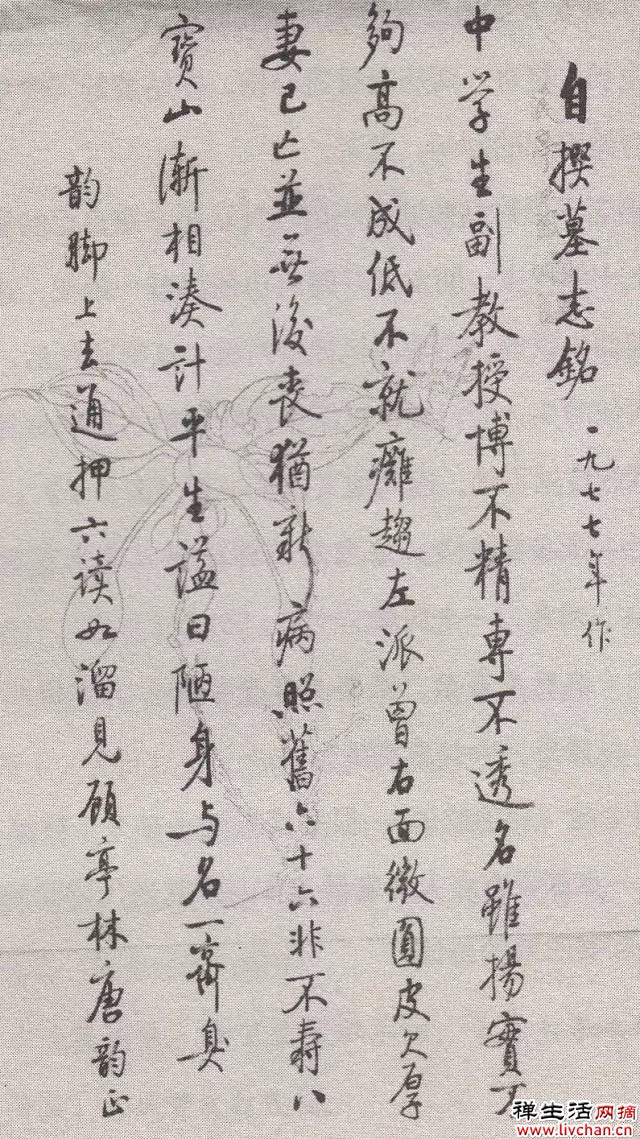 自撰墓志銘 一九七七年作
中学生副教授博不精專不透名雖揚實不
夠高不成低不就癱趨左派曾右面微圓皮欠厚
妻已亡並無後喪猶新病照舊六十六非不壽八
寶山漸相湊計平生謚曰陋身与名一齊臭
韵脚上去通押六读如溜見顾亭林唐韵正
禅生活网摘
www.livchan.cn